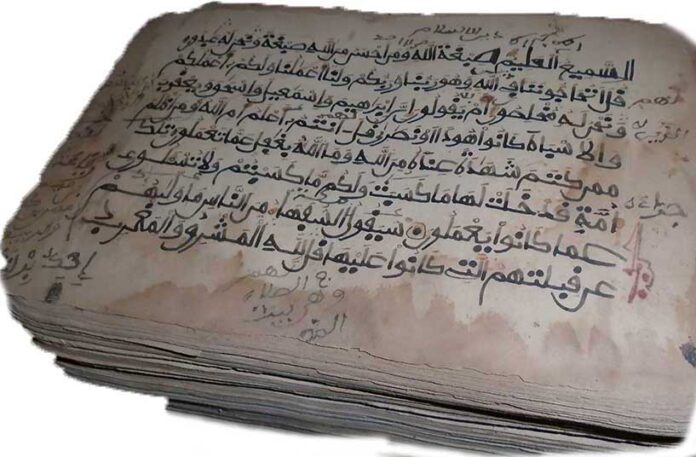 السميع العليم صبغة الله ومن احسن من الله صبغة ونحن له عبدون
قل اتحاجوننا في الله وهو ربنا وربكم ولنا اعملنا ولكم اعملكم
ونحن له مخلصون ام يقولون ان ابرهيم واسمعيل واسحق ويعقوب
والاسباط كانوا هودا او نصرى قل ءانتم اعلم ام الله ومن اظلم
ممن كتم شهدة عنده من الله وما الله بغفل عما تعملون تلك
امة قد خلت لها ما كسبت ولكم ما كسبتم ولا تسئلون
عما كانوا يعملون سيقول السفهاء من الناس ما وليهم
عن قبلتهم التي كانوا عليها قل لله المشرق والمغرب